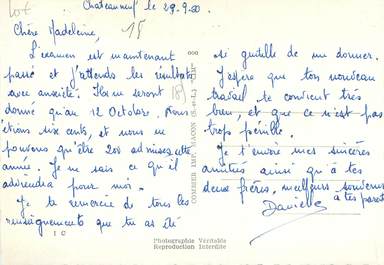 Lot
Chateauneuf le 29.9.60
18
Chère Madeleine,
L'examen est maintenant
passé et j'attends les résultats
avec anxiété. Ils ne seront
donné qu'au 12 Octobre. Nous
étions six cents, et nous ne
pouvons qu'être 200 admises cette
année. Je ne sais ce qu'il
adviendra pour moi.
Je te remercie de tous les
renseignements que tu as été
si gentille de me donner.
J'espère que ton nouveau
travail te convient très
bien, et que ce n'est pas
trop pénible.
Je t'envoie mes sincères
amitiés ainsi qu'à tes
deux frères, meilleurs souvenirs
à tes parents
Danièle
COMBIER IMP. MACON (S.-et-L.) "CIM"
Photographie Véritable
Reproduction Interdite